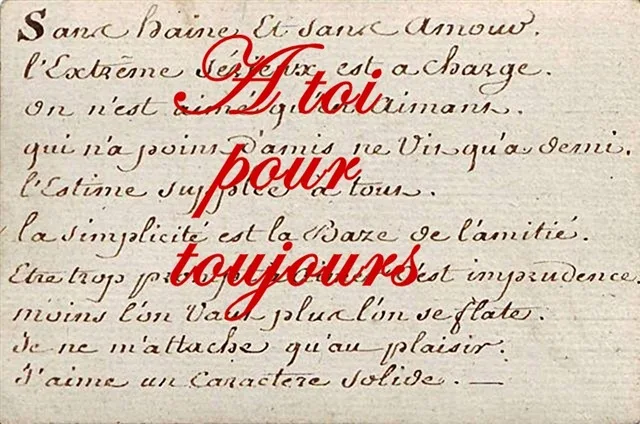 Sans haine Et sans amour.
l'Extrême sérieux est a charge.
on n'est aimé qu'en aimant.
qui n'a point d'amis ne Vit qu'a demi.
l'Estime supplée à tout.
la simplicité est la Baze de l'amitié.
Etre trop c'est imprudence.
moins l'on Vaut plus l'on se flate.
Je ne m'attache qu'au plaisir.
J'aime un Caractere solide. —
A toi
pour
toujours